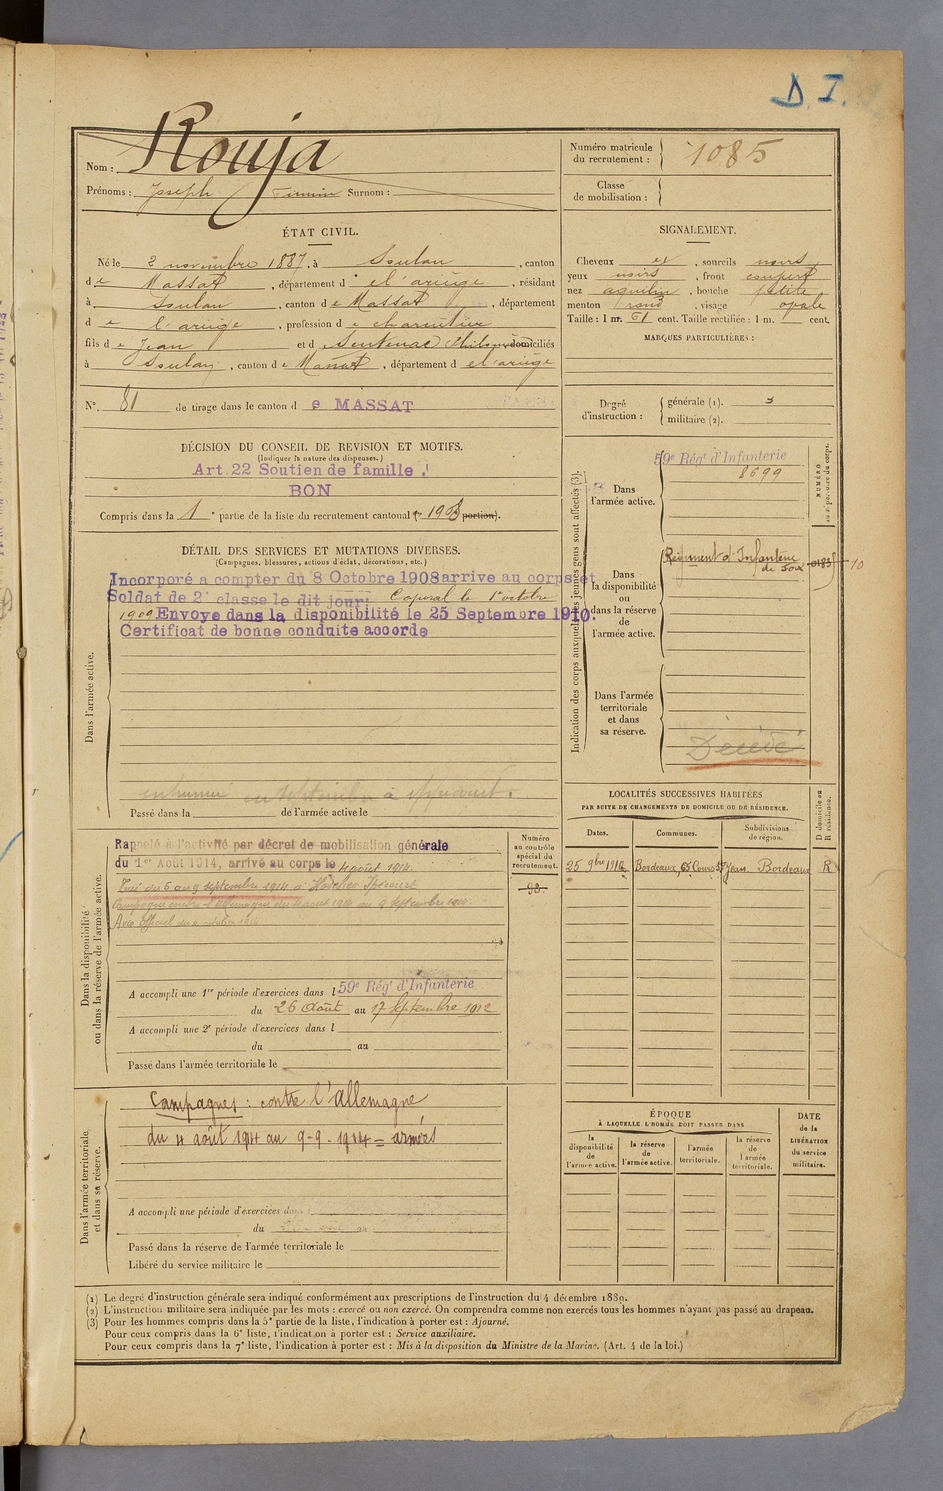 D. I.
Nom : Rouja
Prénoms : Joseph Firmin Surnom :
Numéro matricule du recrutement : 1085
Classe de mobilisation :
ÉTAT CIVIL.
Né le 2 novembre 1887, à Soulan, canton
de Massat, département de l'ariège, résidant
à Soulan, canton de Massat, département
de l'ariège, profession de charcutier
fils de Jean et de Sentenac domiciliés
à Soulan, canton de Massat, département de l'ariège
N°. 81 de tirage dans le canton de MASSAT
DÉCISION DU CONSEIL DE REVISION ET MOTIFS.
(Indiquer la nature des dispenses.)
Art. 22 Soutien de famille
BON
Compris dans la 1e partie de la liste du recrutement cantonal ( 1908 portion).
DÉTAIL DES SERVICES ET MUTATIONS DIVERSES.
(Campagnes, blessures, actions d'éclat, décorations, etc.)
Dans l'armée active.
Incorporé a compter du 8 Octobre 1908 arrive au corps et
Soldat de 2e classe le dit jour. Caporal le 1er octobre
1909 Envoye dans la disponibilité le 25 Septembre 1910.
Certificat de bonne conduite accorde
inhumé en septembre à
Passé dans la de l'armée active le
Dans la disponibilité ou dans la réserve de l'armée active.
Rappelé à l'activité par décret de mobilisation générale
du 1er Août 1914, arrivé au corps le 4 août 1914.
Tué du 6 au 9 septembre 1914 à
Campagne contre l'Allemagne du 4 août 1914 au 9 septembre 1914.
Avis officiel du
Numéro au contrôle spécial du recrutement.
A accompli une 1re période d'exercices dans l 59e Régt d'Infanterie
du 26 Août au 17 Septembre 1912
A accompli une 2e période d'exercices dans l
du au
Passé dans l'armée territoriale le
Dans l'armée territoriale et dans sa réserve.
Campagnes : contre l'Allemagne
du 4 août 1914 au 9-9-1914 = armées
A accompli une période d'exercices dans l
du au
Passé dans la réserve de l'armée territoriale le
Libéré du service militaire le
SIGNALEMENT.
Cheveux et, sourcils noirs
yeux noirs, front couvert
nez aquilin, bouche petite
menton rond, visage ovale
Taille : 1 m. 61 cent. Taille rectifiée : 1 m. cent.
MARQUES PARTICULIÈRES :
Degré d'instruction : générale (1). 3
militaire (2).
Indication des corps auxquels les jeunes gens sont affectés (3).
NUMÉRO au répertoire du corps.
Dans l'armée active.
59e Régt d'Infanterie
8699
Dans la disponibilité ou dans la réserve de l'armée active.
Régiment d'Infanterie
de Foix
Dans l'armée territoriale et dans sa réserve.
Décédé
LOCALITÉS SUCCESSIVES HABITÉES
PAR SUITE DE CHANGEMENTS DE DOMICILE OU DE RÉSIDENCE.
D domicile ou R résidence.
Dates. Communes. Subdivisions de région.
25 9bre 1912 Bordeaux, 65 Cours St Jean. Bordeaux R
ÉPOQUE
À LAQUELLE L'HOMME DOIT PASSER DANS
la disponibilité de l'armée active. la réserve de l'armée active. l'armée territoriale. la réserve de l'armée territoriale.
DATE de la LIBÉRATION du service militaire.
(1) Le degré d'instruction générale sera indiqué conformément aux prescriptions de l'instruction du 4 décembre 1889.
(2) L'instruction militaire sera indiquée par les mots : exercé ou non exercé. On comprendra comme non exercés tous les hommes n'ayant pas passé au drapeau.
(3) Pour les hommes compris dans la 5e partie de la liste, l'indication à porter est : Ajourné.
Pour ceux compris dans la 6e liste, l'indication à porter est : Service auxiliaire.
Pour ceux compris dans la 7e liste, l'indication à porter est : Mis à la disposition du Ministre de la Marine. (Art. 4 de la loi.)